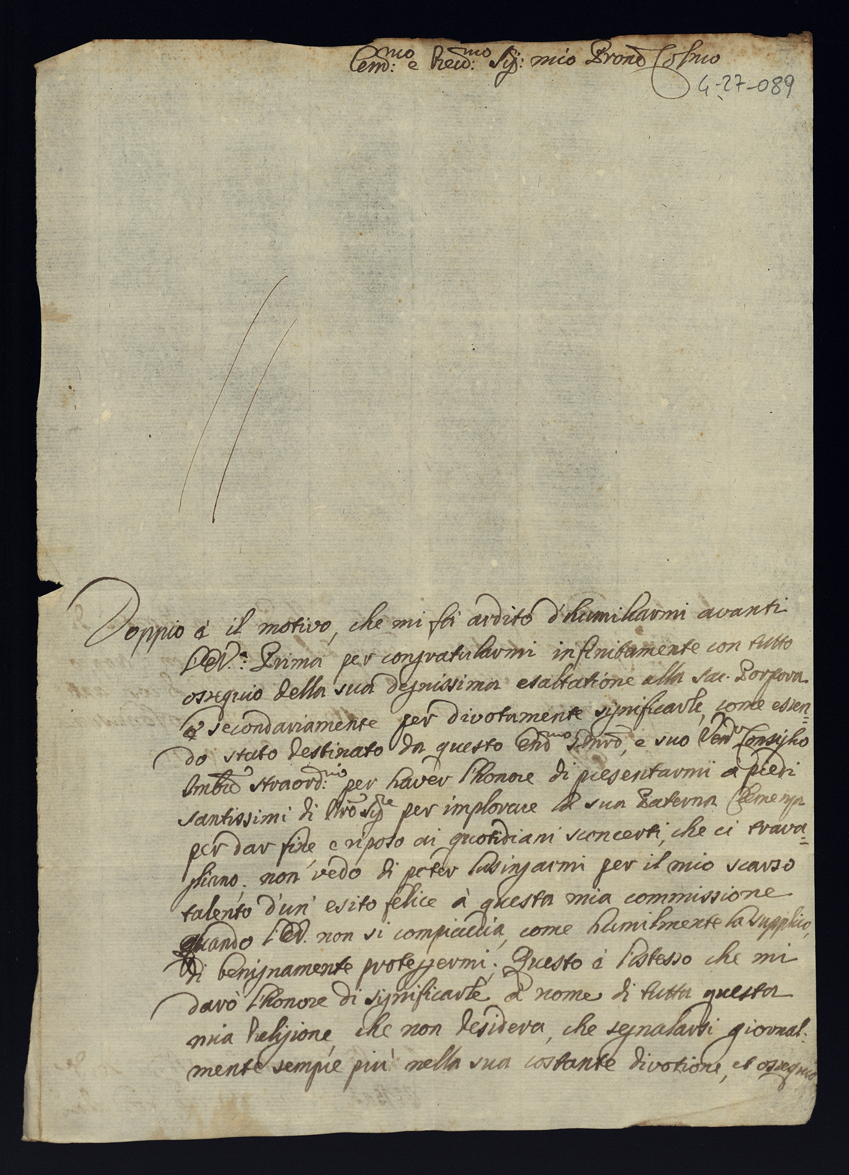 Em:mo e Rev:mo Sig: mio Pron Colmo
4-27-089
Doppio è il motivo, che mi fà ardito d'humiliarmi avanti
l'E.V.a Prima per congratularmi infinitamente con tutto
ossequio della sua degnissima esaltatione alla Sac. Porpora
e secondariamente per divotamente significarle, come essen=
do stato destinato da questo Em:mo, e suo Ven:do Consiglio
Amb:re straord:rio per haver l'honore di presentarmi a piedi
santissimi di Nro Sig:re per implorare la sua Paterna Clemenza
per dar fine e riposo ai quotidiani sconcerti, che ci trava=
gliano. non vedo di poter lusingarmi per il mio scarso
talento d'un' esito felice à questa mia commissione
quando l'E.V. non si compiaccia, come humilmente la supplico,
di benignamente proteggermi. Questo è l'istesso che mi
darò l'honore di significarle à nome di tutta questa
mia Religione che non desidera, che segnalarsi giornal=
mente sempre più nella sua costante divotione, et ossequio